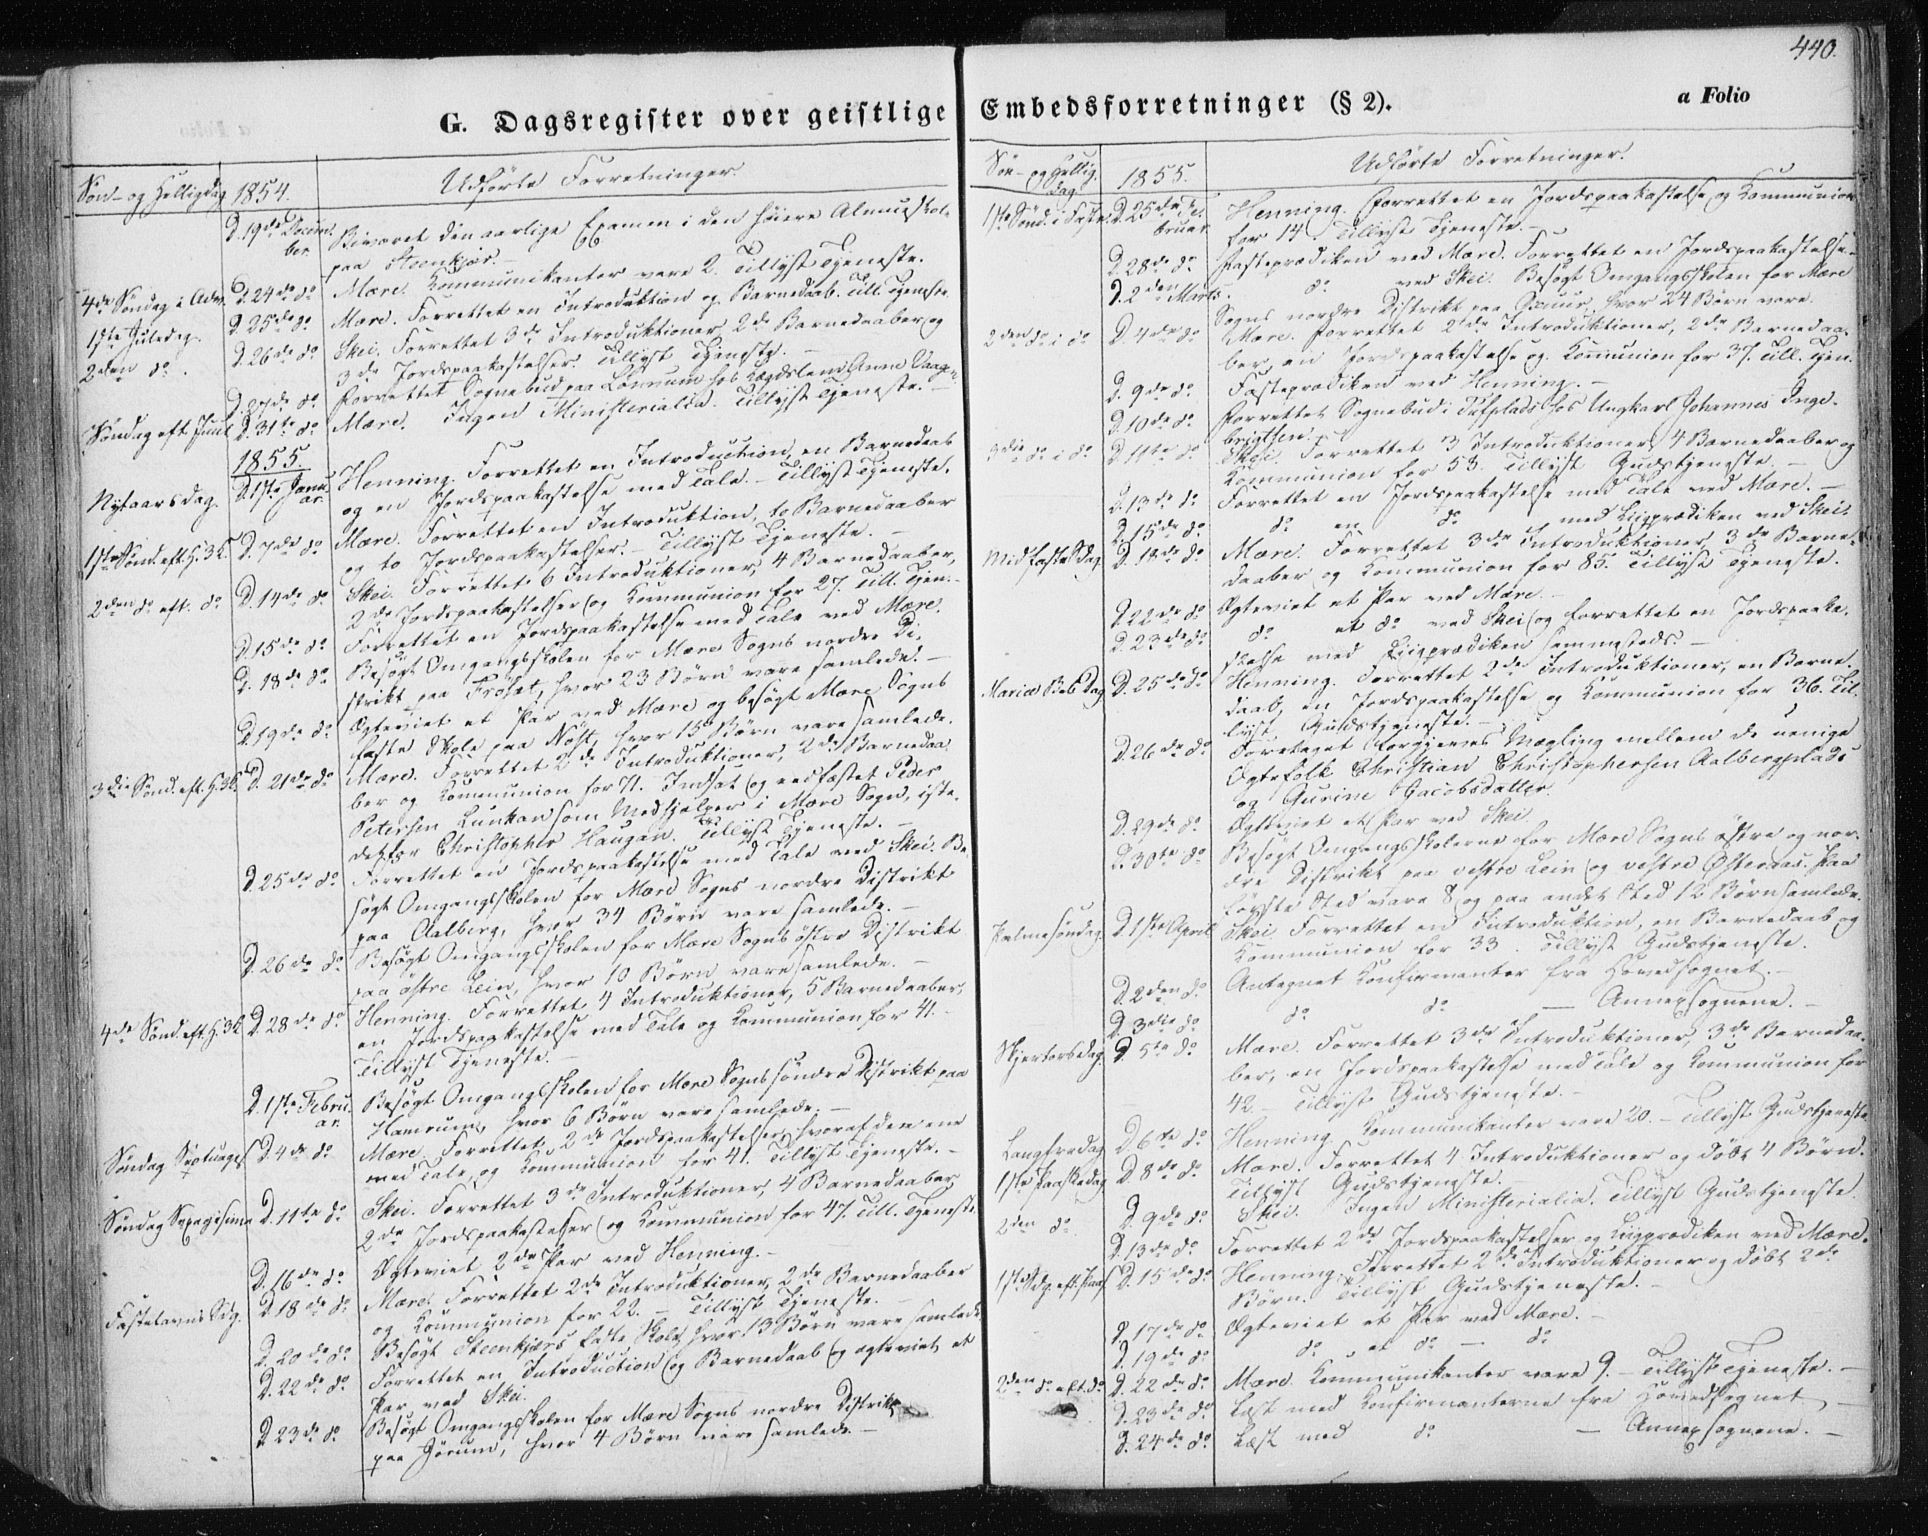 440.
G. Dagsregister over geistlige Embedsforretninger (§ 2).
a Folio
Søn- og Helligdag 1854. Udførte Forretninger.
D. 19de Decem- Bivaaret den aarlige Examen i den høiere Almueskole
ber. paa Steenkjær.-
4de Søndag i Adv. D. 24de do Mære. Kommunikanter vare 2. Tillyst Tjeneste.
1ste Juledag. D. 25de do Mære. Forrettet en Introduktion og Barnedaab. Till. Tjeneste.
2den do. D. 26de do Skei. Forrettet 3de Introduktioner, 2de Barnedaaber og
3de Jordspaakastelser. Tillyst Tjeneste.-
D. 27de do Forrettet Sognebud paa Lønnum hos Lægdslem Anne Vaagen.
Søndag eft. Juul D. 31te do Mære. Ingen Ministerialia. Tillyst Tjeneste.-
1855.
Nytaarsdag. D. 1ste Janu- Henning. Forrettet en Introduction, en Barnedaab
ar. og en Jordspaakastelse med Tale.- Tillyst Tjeneste.
1ste Sønd. eft. H. 3 K. D. 7de do Mære. Forrettet en Introduktion, to Barnedaaber
og to Jordspaakastelser.- Tillyst Tjeneste.-
2den do eft. do D. 14de do Skei. Forrettet 6 Introduktioner, 4 Barnedaaber,
2de Jordspaakastelser og Kommunion for 27. Till. Tjen.-
D. 15de do Forrettet en Jordspaakastelse med Tale ved Mære.
D. 18de do Besøgt Omgangsskolen for Mære Sogns nordre Di-
strikt paa Frøset, hvor 23 Børn vare samlede.-
D. 19de do Ægteviet et Par ved Mære og besøgt Mære Sogns
faste Skole paa Nøst, hvor 15 Børn vare samlede.
3die Sønd. eft. H. 3 K. D. 21de do Mære. Forrettet 2de Introduktioner, 2de Barnedaa-
ber og Kommunion for 71. Indsat og eedfæstet Peder
Petersen Lunkan som Medhjelper i Mære Sogn, iste-
detfor Christopher Haugan. Tillyst Tjeneste.-
D. 25de do Forrettet en Jordspaakastelse med Tale ved Skei. Be-
søgt Omgangsskolen for Mære Sogns nordre Distrikt
paa Aalberg, hvor 34 Børn vare samlede.-
D. 26de do Besøgt Omgangsskolen for Mære Sogns østre Distrikt
paa østre Lein, hvor 10 Børn vare samlede.-
4de Sønd. eft. H. 3 K. D. 28de do Henning. Forrettet 4 Introduktioner, 5 Barnedaaber,
en Jordspaakastelse med Tale og Kommunion for 41.-
Tillyst Tjeneste.-
D. 1ste Febru- Besøgt Omgangsskolen for Mære Sogns søndre Distrikt paa
ar. Hamrum, hvor 6 Børn vare samlede.-
Søndag Septuages. D. 4de do Mære. Forrettet 2de Jordspaakastelser, hvoraf den ene
med Tale, og Kommunion for 41. Tillyst Tjeneste.-
Søndag Sexagesima D. 11te do Skei. Forrettet 3de Introduktioner, 4 Barnedaaber,
2de Jordspaakastelser og Kommunion for 47. Till. Tjeneste.
D. 16de do Ægteviet 2de Par ved Henning.-
Fastelavns Sdg. D. 18de do Mære. Forrettet 2de Introduktioner, 2de Barnedaaber
og Kommunion for 22.- Tillyst Tjeneste.-
D. 20de do Besøgt Steenkjærs faste Skole, hvor 13 Børn vare samlede.
D. 22de do Forrettet en Introduction og Barnedaab og ægteviet et
Par ved Skei.
D. 23de do Besøgt Omgangsskolen for Mære Sogns nordre Distrikt
paa Jørum, hvor 4 Børn vare samlede.-
Søn- og Hellig- 1855. Udførte Forretninger.
dag.
1ste Sønd. i Faste. D. 25de Fe- Henning. Forrettet en Jordspaakastelse og Kommunion
bruar. for 14. Tillyst Tjeneste.-
D. 28de do Fasteprædiken ved Mære. Forrettet en Jordspaakastelse.
D. 2den Marts. do ved Skei. Besøgt Omgangsskolen for Mære
Sogns nordre Distrikt paa hvor 24 Børn vare.
2den do i do D. 4de do Mære. Forrettet 2de Introduktioner, 2de Barnedaa-
ber, en Jordspaakastelse og Kommunion for 37. Till. Tjen.
D. 9de do Fasteprædiken ved Henning.-
D. 10de do Forrettet Sognebud i hos Ungkarl Johannes Inge-
brigtsen.
3die do i do D. 11te do Skei. Forrettet 3 Introduktioner, 4 Barnedaaber og
Kommunion for 53. Tillyst Gudstjeneste.-
D. 13de do Forrettet en Jordspaakastelse med Tale ved Mære.-
D. 15de do do en do med Liigprædiken ved Skei.
Midfaste Sdag. D. 18de do Mære. Forrettet 3de Introduktioner, 3de Barne-
daaber og Kommunion for 85. Tillyst Tjeneste.
D. 22de do Ægteviet et Par ved Mære.-
D. 23de do do et do ved Skei og forrettet en Jordspaaka-
stelse med Liigprædiken sammesteds.-
Mariæ Beb. Dag. D. 25de do Henning. Forrettet 2de Introduktioner, en Barne-
daab, en Jordspaakastelse og Kommunion for 36. Til-
lyst Gudstjeneste.-
D. 26de do Foretaget forgjeves Mægling mellem de uenige
Ægtefolk Christian Christophersen Aalbergplads
og Gurine Jacobsdatter.
D. 29de do Ægteviet et Par ved Skei.
D. 30te do Besøgt Omgangsskolerne for Mære Sogns østre og nor-
dre Distrikt paa vestre Lein og vestre Østeraas. Paa
første Sted vare 8 og paa andet Sted 12 Børn samlede.
Palmesøndag. D. 1ste April Skei. Forrettet en Introduktion, en Barnedaab og
Kommunion for 33. Tillyst Gudstjeneste.
D. 2den do Antegnet Konfirmanter fra Hovedsognet.-
D. 3die do do do - Annexsognene.-
Skjertorsdag. D. 5te do Mære. Forrettet 3de Introduktioner, 3de Barnedaa-
ber, en Jordspaakastelse med Tale og Kommunion for
42.- Tillyst Gudstjeneste.-
Langfredag D. 6te do Henning. Kommunikanter vare 20.- Tillyst Gudstjeneste.
1ste Paaskedag D. 8de do Mære. Forrettet 4 Introduktioner og døbt 4 Børn.
Tillyst Gudstjeneste.-
2den do D. 9de do Skei. Ingen Ministerialia. Tillyst Gudstjeneste.
D. 13de do Forrettet 2de Jordspaakastelser og Liigprædiken ved Mære.
1ste Sdg. eft. Paas. D. 15de do Henning. Forrettet 2de Introduktioner og døbt 2de
Børn. Tillyst Gudstjeneste.-
D. 17de do Ægteviet et Par ved Mære.-
D. 19de do do et do - do
2den do eft. do D. 22de do Mære. Kommunikanter vare 9.- Tillyst Tjeneste.-
D. 23de do Læst med Konfirmanterne fra Hovedsognet.-
D. 24de do Læst med do - Annexsognene.-